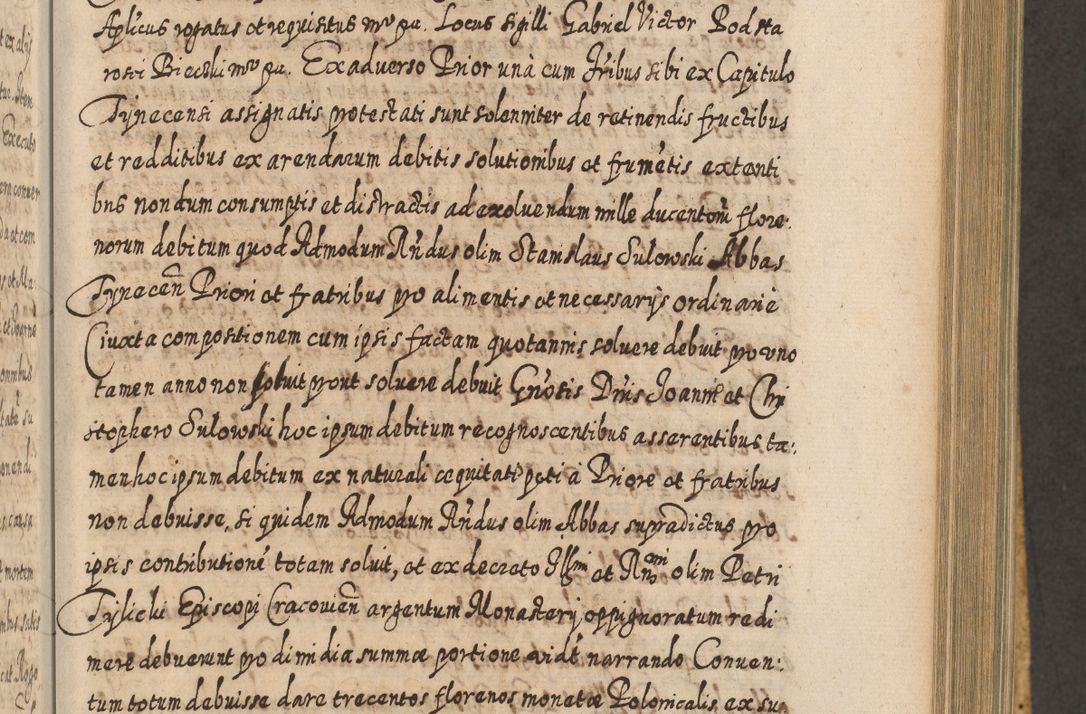 Aplicus rogatus et requisitus mp̄ pa. Locus Sigilli Gabriel Victor Podsta
rosci Biecski mp̄ pa. Ex adverso Prior unà cum Fribus sibi ex Capitulo
Tynecensi assignatis protestati sunt solenniter de retinendis fructibus
et redditibus ex arendarum debitis solutionibus et frumētis extanti
bus nondum consumptis et distractis ad exoluendum mille ducentorū flore:
norum debitum quod Admodum Rn̄dus olim Stanislaus Sulowski Abbas
Tynecēn Priori et fratribus pro alimentis et necessarijs ordinariè
iuxta compositionem cum ipsis factam quotannis soluere debuit pro uno
tamen anno non soluit prout soluere debuit Gn̄osis Dn̄is Joanne et Chri
stophero Sulowski hoc ipsum debitum recognoscentibus asserentibus ta:
men hoc ipsum debitum ex naturali aequitati peti à Priore et fratribus
non debuisse, si quidem Admodum Rn̄dus olim Abbas supradictus pro
ipsis contributionē totam soluit, et ex decreto Illmi et Rn̄mi olim Petri
Tylicki Episcopi Cracoviēn argentum Monasterij oppignoratum redi
mere debuerunt pro dimidia summae portione vidt narrando Conuen:
tum totum debuisse dare trecentos florenos monetae Polonicalis ex su